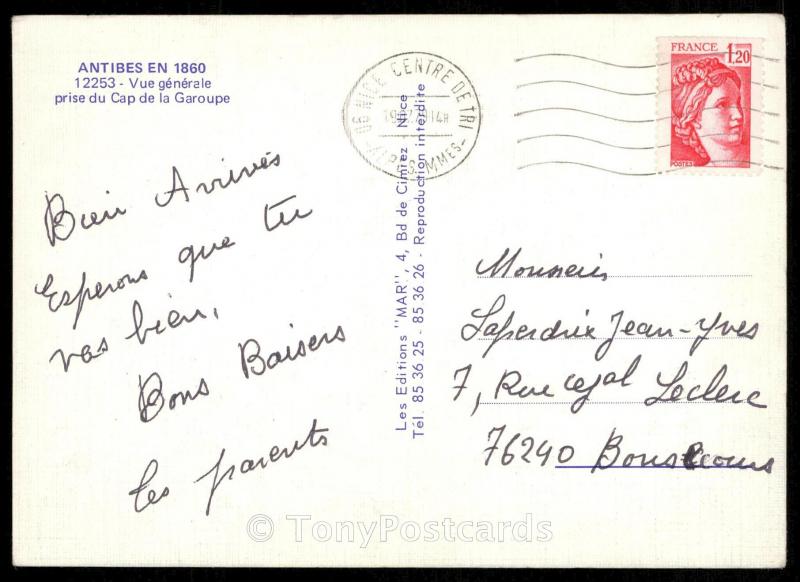 ANTIBES EN 1860
12253 - Vue générale
prise du Cap de la Garoupe
Bien Arrivés
Esperons que tu
vas bien,
Bons Baisers
les parents
Les Editions "MAR", 4, Bd de Cimiez Nice
Tél. 85 36 25 - 85 36 26 - Reproduction interdite
06 NICE CENTRE DE TRI
14H
ALPES MMES
FRANCE 1,20
POSTES
Monsieur
Laperdrix Jean-Yves
7, Rue Leclerc
76240 Bonsecours
© TonyPostcards